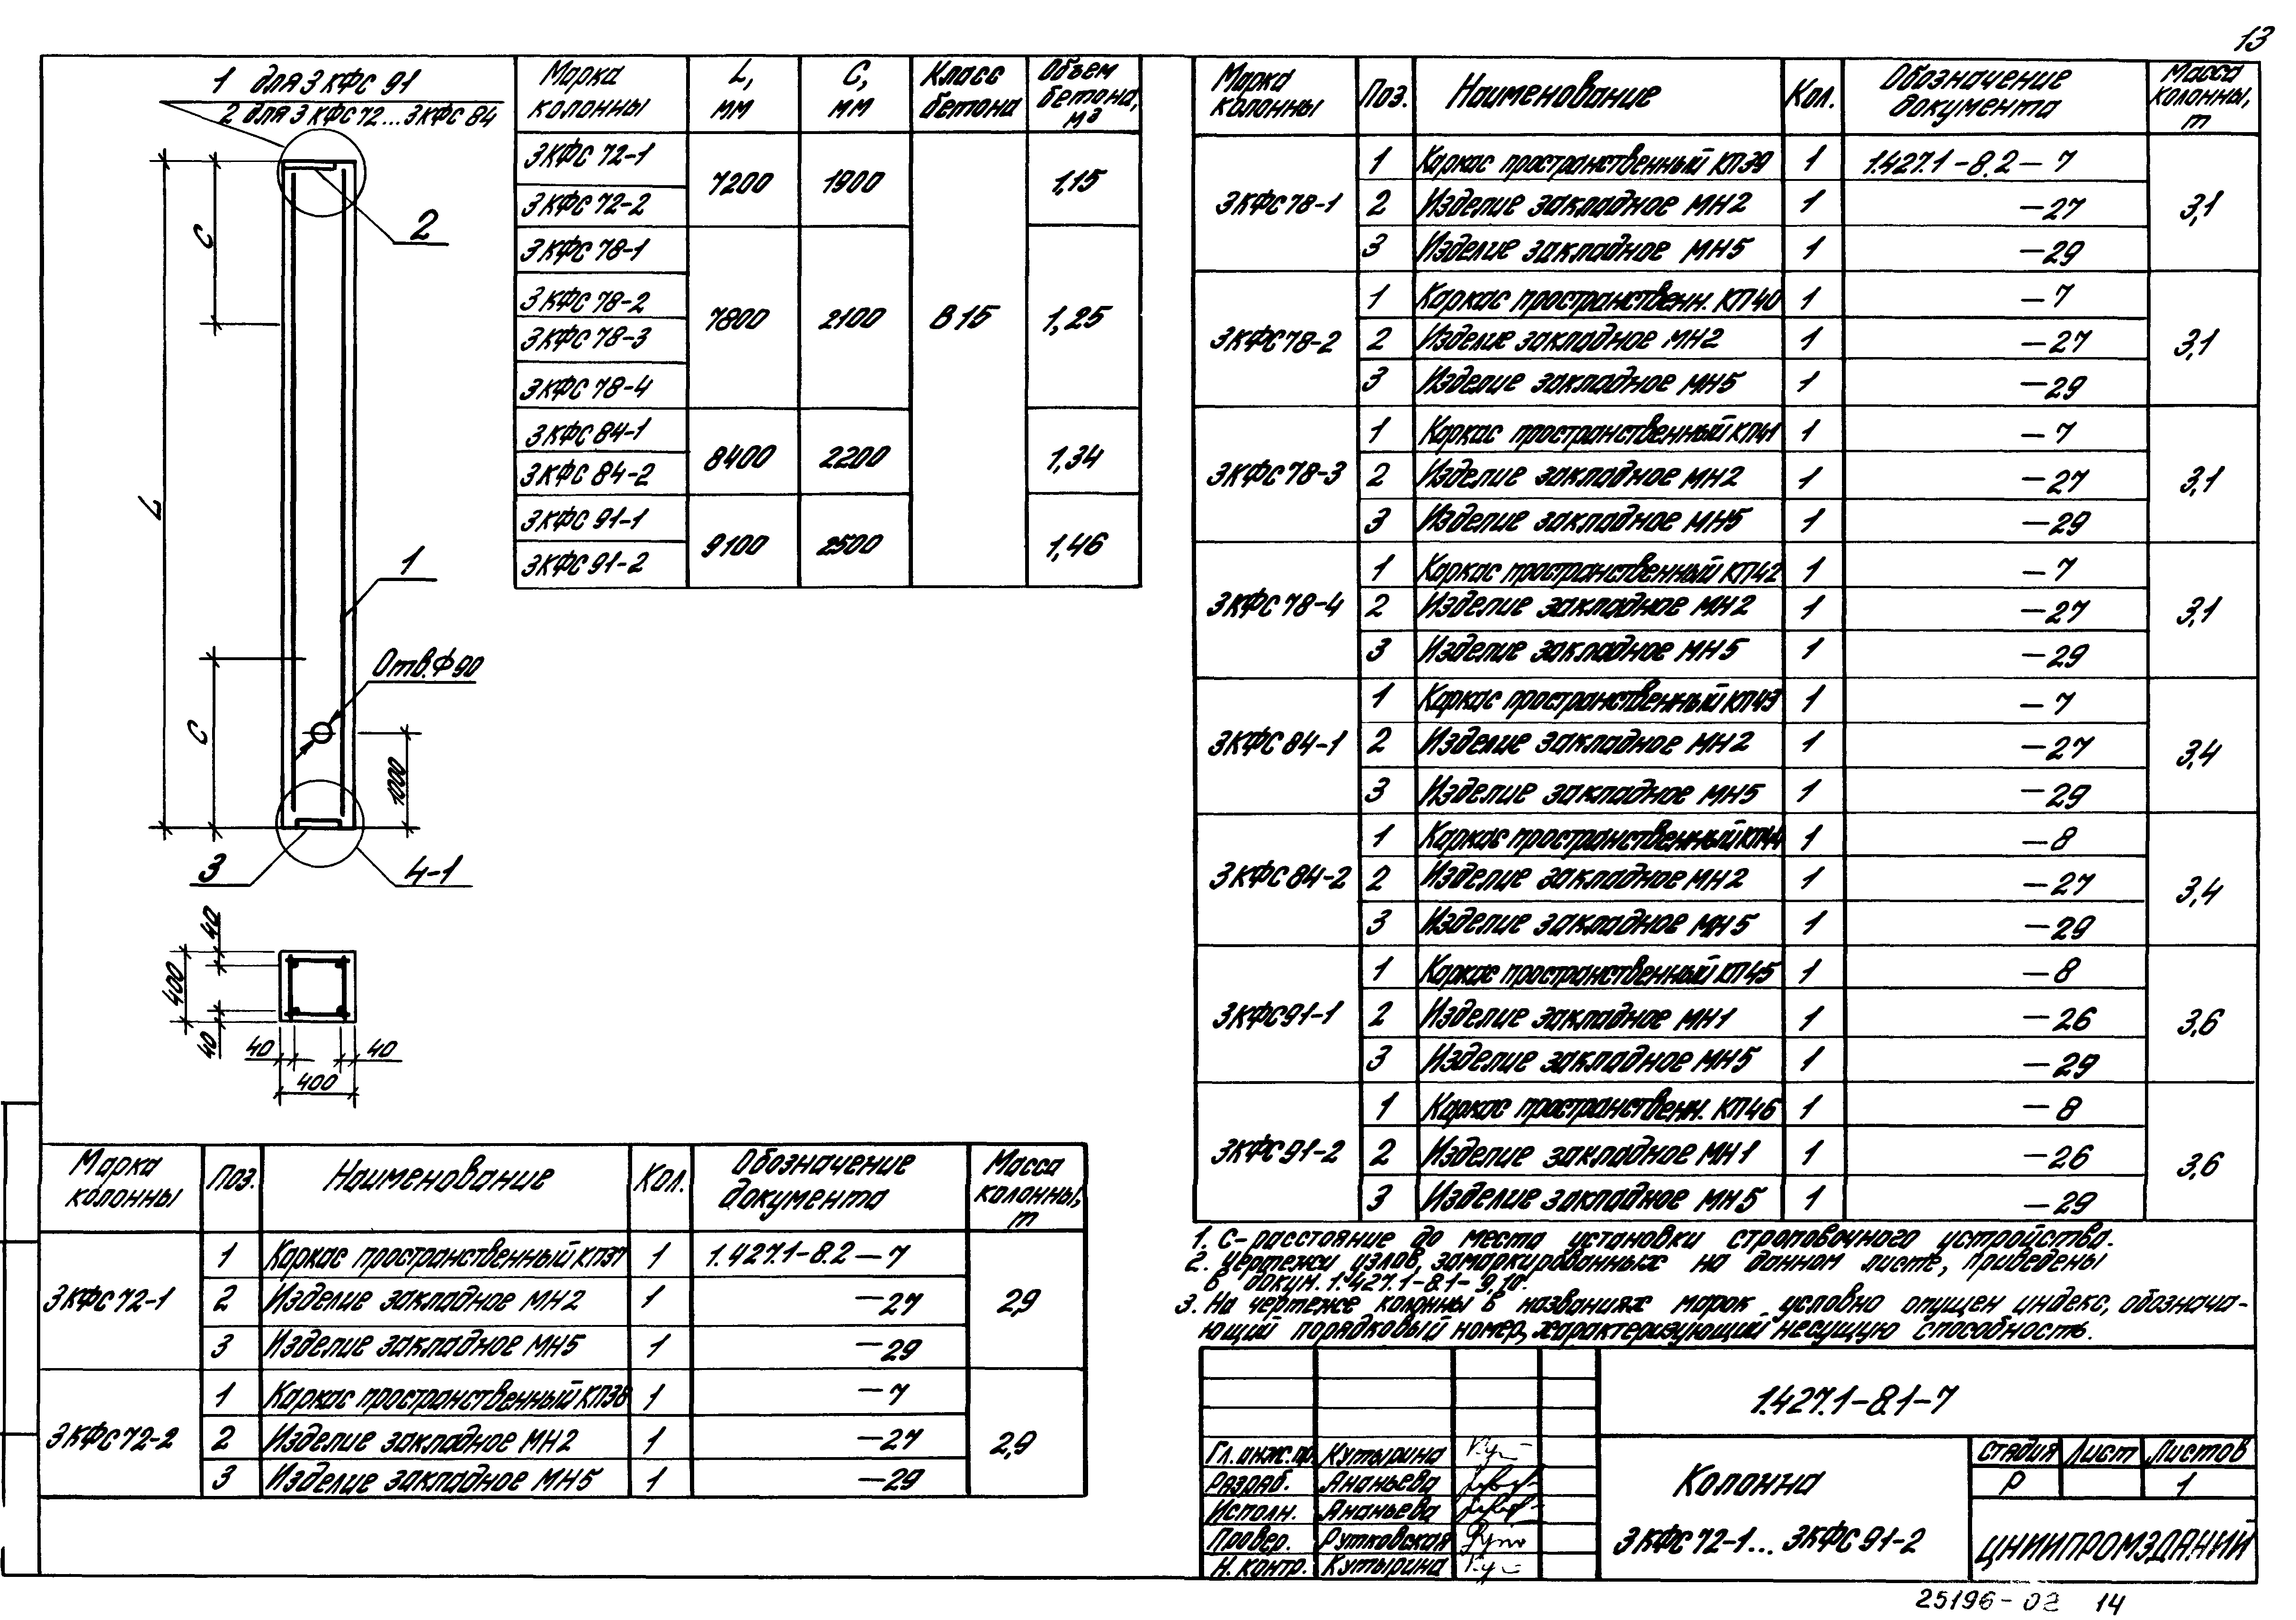 13
1 для 3КФС 91
2 для 3КФС 72...3КФС 84
2
С
L
1
Отв. Ф 90
С
1000
3
4-1
40
400
40
40
40
400
Марка колонны | L, мм | С, мм | Класс бетона | Объем бетона, м³
3КФС 72-1 | 7200 | 1900 | В15 | 1,15
3КФС 72-2
3КФС 78-1 | 7800 | 2100 | 1,25
3КФС 78-2
3КФС 78-3
3КФС 78-4
3КФС 84-1 | 8400 | 2200 | 1,34
3КФС 84-2
3КФС 91-1 | 9100 | 2500 | 1,46
3КФС 91-2
Марка колонны | Поз. | Наименование | Кол. | Обозначение документа | Масса колонны, т
3КФС 72-1 | 1 | Каркас пространственный КП37 | 1 | 1.427.1-8.2-7 | 2,9
2 | Изделие закладное МН2 | 1 | -27
3 | Изделие закладное МН5 | 1 | -29
3КФС 72-2 | 1 | Каркас пространственный КП38 | 1 | -7 | 2,9
2 | Изделие закладное МН2 | 1 | -27
3 | Изделие закладное МН5 | 1 | -29
Марка колонны | Поз. | Наименование | Кол. | Обозначение документа | Масса колонны, т
3КФС 78-1 | 1 | Каркас пространственный КП39 | 1 | 1.427.1-8.2-7 | 3,1
2 | Изделие закладное МН2 | 1 | -27
3 | Изделие закладное МН5 | 1 | -29
3КФС 78-2 | 1 | Каркас пространственн. КП40 | 1 | -7 | 3,1
2 | Изделие закладное МН2 | 1 | -27
3 | Изделие закладное МН5 | 1 | -29
3КФС 78-3 | 1 | Каркас пространственный КП41 | 1 | -7 | 3,1
2 | Изделие закладное МН2 | 1 | -27
3 | Изделие закладное МН5 | 1 | -29
3КФС 78-4 | 1 | Каркас пространственный КП42 | 1 | -7 | 3,1
2 | Изделие закладное МН2 | 1 | -27
3 | Изделие закладное МН5 | 1 | -29
3КФС 84-1 | 1 | Каркас пространственный КП43 | 1 | -7 | 3,4
2 | Изделие закладное МН2 | 1 | -27
3 | Изделие закладное МН5 | 1 | -29
3КФС 84-2 | 1 | Каркас пространственный КП44 | 1 | -8 | 3,4
2 | Изделие закладное МН2 | 1 | -27
3 | Изделие закладное МН5 | 1 | -29
3КФС 91-1 | 1 | Каркас пространственный КП45 | 1 | -8 | 3,6
2 | Изделие закладное МН1 | 1 | -26
3 | Изделие закладное МН5 | 1 | -29
3КФС 91-2 | 1 | Каркас пространственн. КП46 | 1 | -8 | 3,6
2 | Изделие закладное МН1 | 1 | -26
3 | Изделие закладное МН5 | 1 | -29
1. С-расстояние до места установки строповочного устройства.
2. Чертежи узлов, замаркированных на данном листе, приведены
в докум. 1.427.1-8.1-9,10.
3. На чертеже колонны в названиях марок условно опущен индекс, обознача-
ющий порядковый номер, характеризующий несущую способность.
1.427.1-8.1-7
Гл. инж. пр. Кутырина
Разраб. Ананьева
Исполн. Ананьева
Провер. Рутковская
Н. контр. Кутырина
Колонна
3КФС 72-1... 3КФС 91-2
Стадия | Лист | Листов
Р | 1
ЦНИИПРОМЗДАНИЙ
25196-02 14